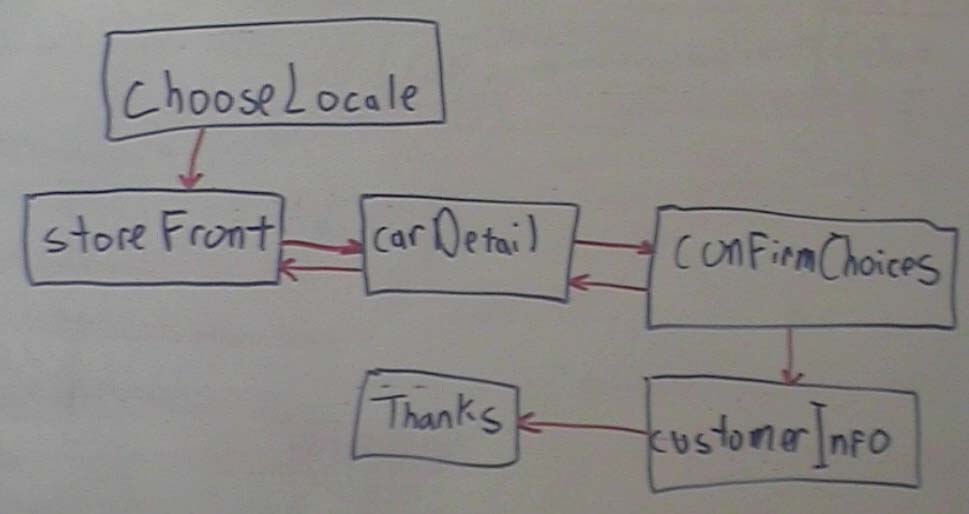 ChooseLocale
storeFront
carDetail
confirmChoices
Thanks
customerInfo